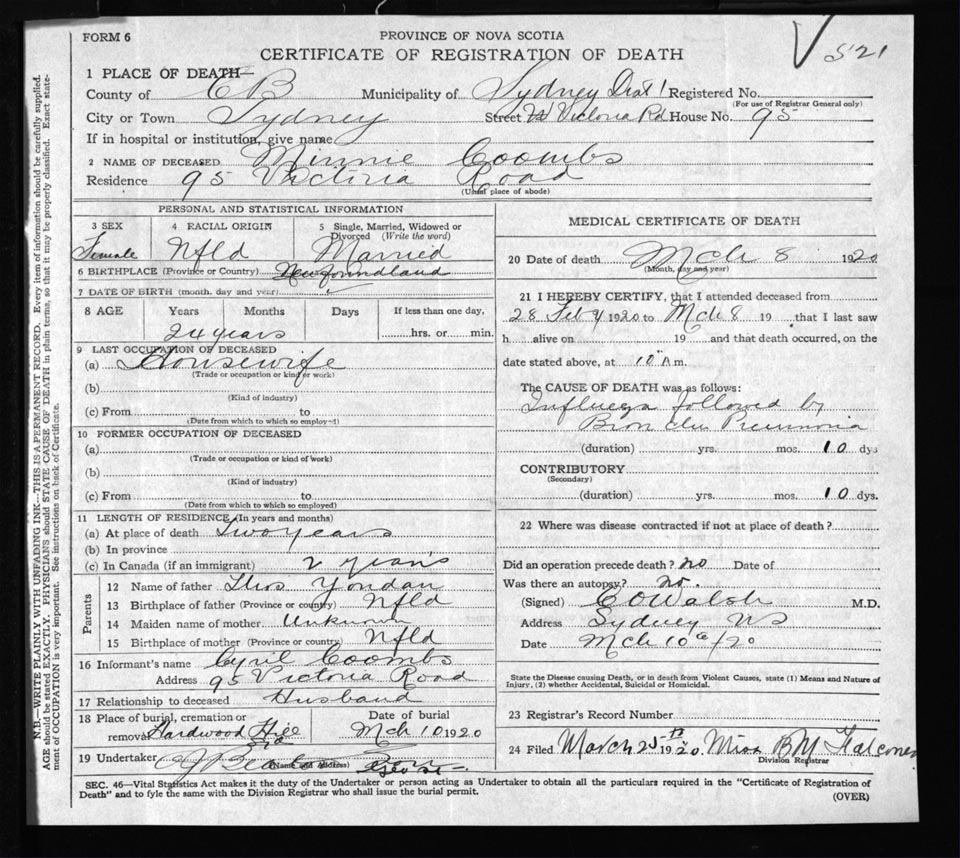 FORM 6
PROVINCE OF NOVA SCOTIA
CERTIFICATE OF REGISTRATION OF DEATH
√ 521
1 PLACE OF DEATH—
County of CB Municipality of Sydney Dist 1 Registered No.
(For use of Registrar General only)
City or Town Sydney Street Victoria Rd House No. 95
If in hospital or institution, give name
2 NAME OF DECEASED Minnie Coombs
Residence 95 Victoria Road
(Usual place of abode)
PERSONAL AND STATISTICAL INFORMATION
3 SEX 4 RACIAL ORIGIN 5 Single, Married, Widowed or
Divorced (Write the word)
Female Nfld Married
6 BIRTHPLACE (Province or Country) Newfoundland
7 DATE OF BIRTH (month, day and year)
8 AGE Years Months Days If less than one day,
24 years hrs. or min.
9 LAST OCCUPATION OF DECEASED
(a) Housewife
(Trade or occupation or kind or work)
(b)
(Kind of industry)
(c) From to
(Date from which to which so employed)
10 FORMER OCCUPATION OF DECEASED
(a)
(Trade or occupation or kind of work)
(b)
(Kind of industry)
(c) From to
(Date from which to which so employed)
11 LENGTH OF RESIDENCE (In years and months)
(a) At place of death Two years
(b) In province
(c) In Canada (if an immigrant) 2 years
Parents
12 Name of father Thos Yondan
13 Birthplace of father (Province or country) Nfld
14 Maiden name of mother Unknown
15 Birthplace of mother (Province or country) Nfld
16 Informant's name Cyril Coombs
Address 95 Victoria Road
17 Relationship to deceased Husband
18 Place of burial, cremation or Date of burial
removal Hardwood Hill Mch 10 1920
19 Undertaker
(Name and address)
MEDICAL CERTIFICATE OF DEATH
20 Date of death Mch 8 1920
(Month, day and year)
21 I HEREBY CERTIFY, that I attended deceased from
28 Feby 1920 to Mch 8 19 that I last saw
h alive on 19 and that death occurred, on the
date stated above, at 10 A m.
The CAUSE OF DEATH was as follows:
Influenza followed by
Broncho Pneumonia
(duration) yrs. mos. 10 dys
CONTRIBUTORY
(Secondary)
(duration) yrs. mos. 10 dys.
22 Where was disease contracted if not at place of death?
Did an operation precede death? no Date of
Was there an autopsy? no.
(Signed) E O Walsh M.D.
Address Sydney NS
Date Mch 10th/20
State the Disease causing Death, or in death from Violent Causes, state (1) Means and Nature of
Injury, (2) whether Accidental, Suicidal or Homicidal.
23 Registrar's Record Number
24 Filed March 25th 1920 Miss B M Falconer
Division Registrar
SEC. 46—Vital Statistics Act makes it the duty of the Undertaker or person acting as Undertaker to obtain all the particulars required in the "Certificate of Registration of
Death" and to fyle the same with the Division Registrar who shall issue the burial permit.
(OVER)
N.B.—WRITE PLAINLY WITH UNFADING INK—THIS IS A PERMANENT RECORD. Every item of information should be carefully supplied.
AGE should be stated EXACTLY. PHYSICIANS should STATE CAUSE OF DEATH in plain terms, so that it may be properly classified. Exact state-
ment of OCCUPATION is very important. See instructions on back of Certificate.